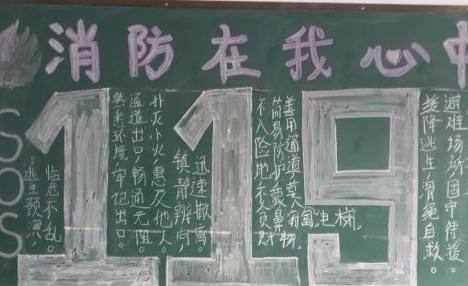 消防在我心中
SOS
119
逃生预
临危不乱。
熟悉环境，牢记出口。
通道出口，畅通无阻
扑灭小火，惠及他人。
镇静辨向
迅速撤离
不入险地，不贪财
简易防护，蒙鼻
善用通道，莫入电梯。
避难场所，固守待援。
缓降逃生，滑绳自救。